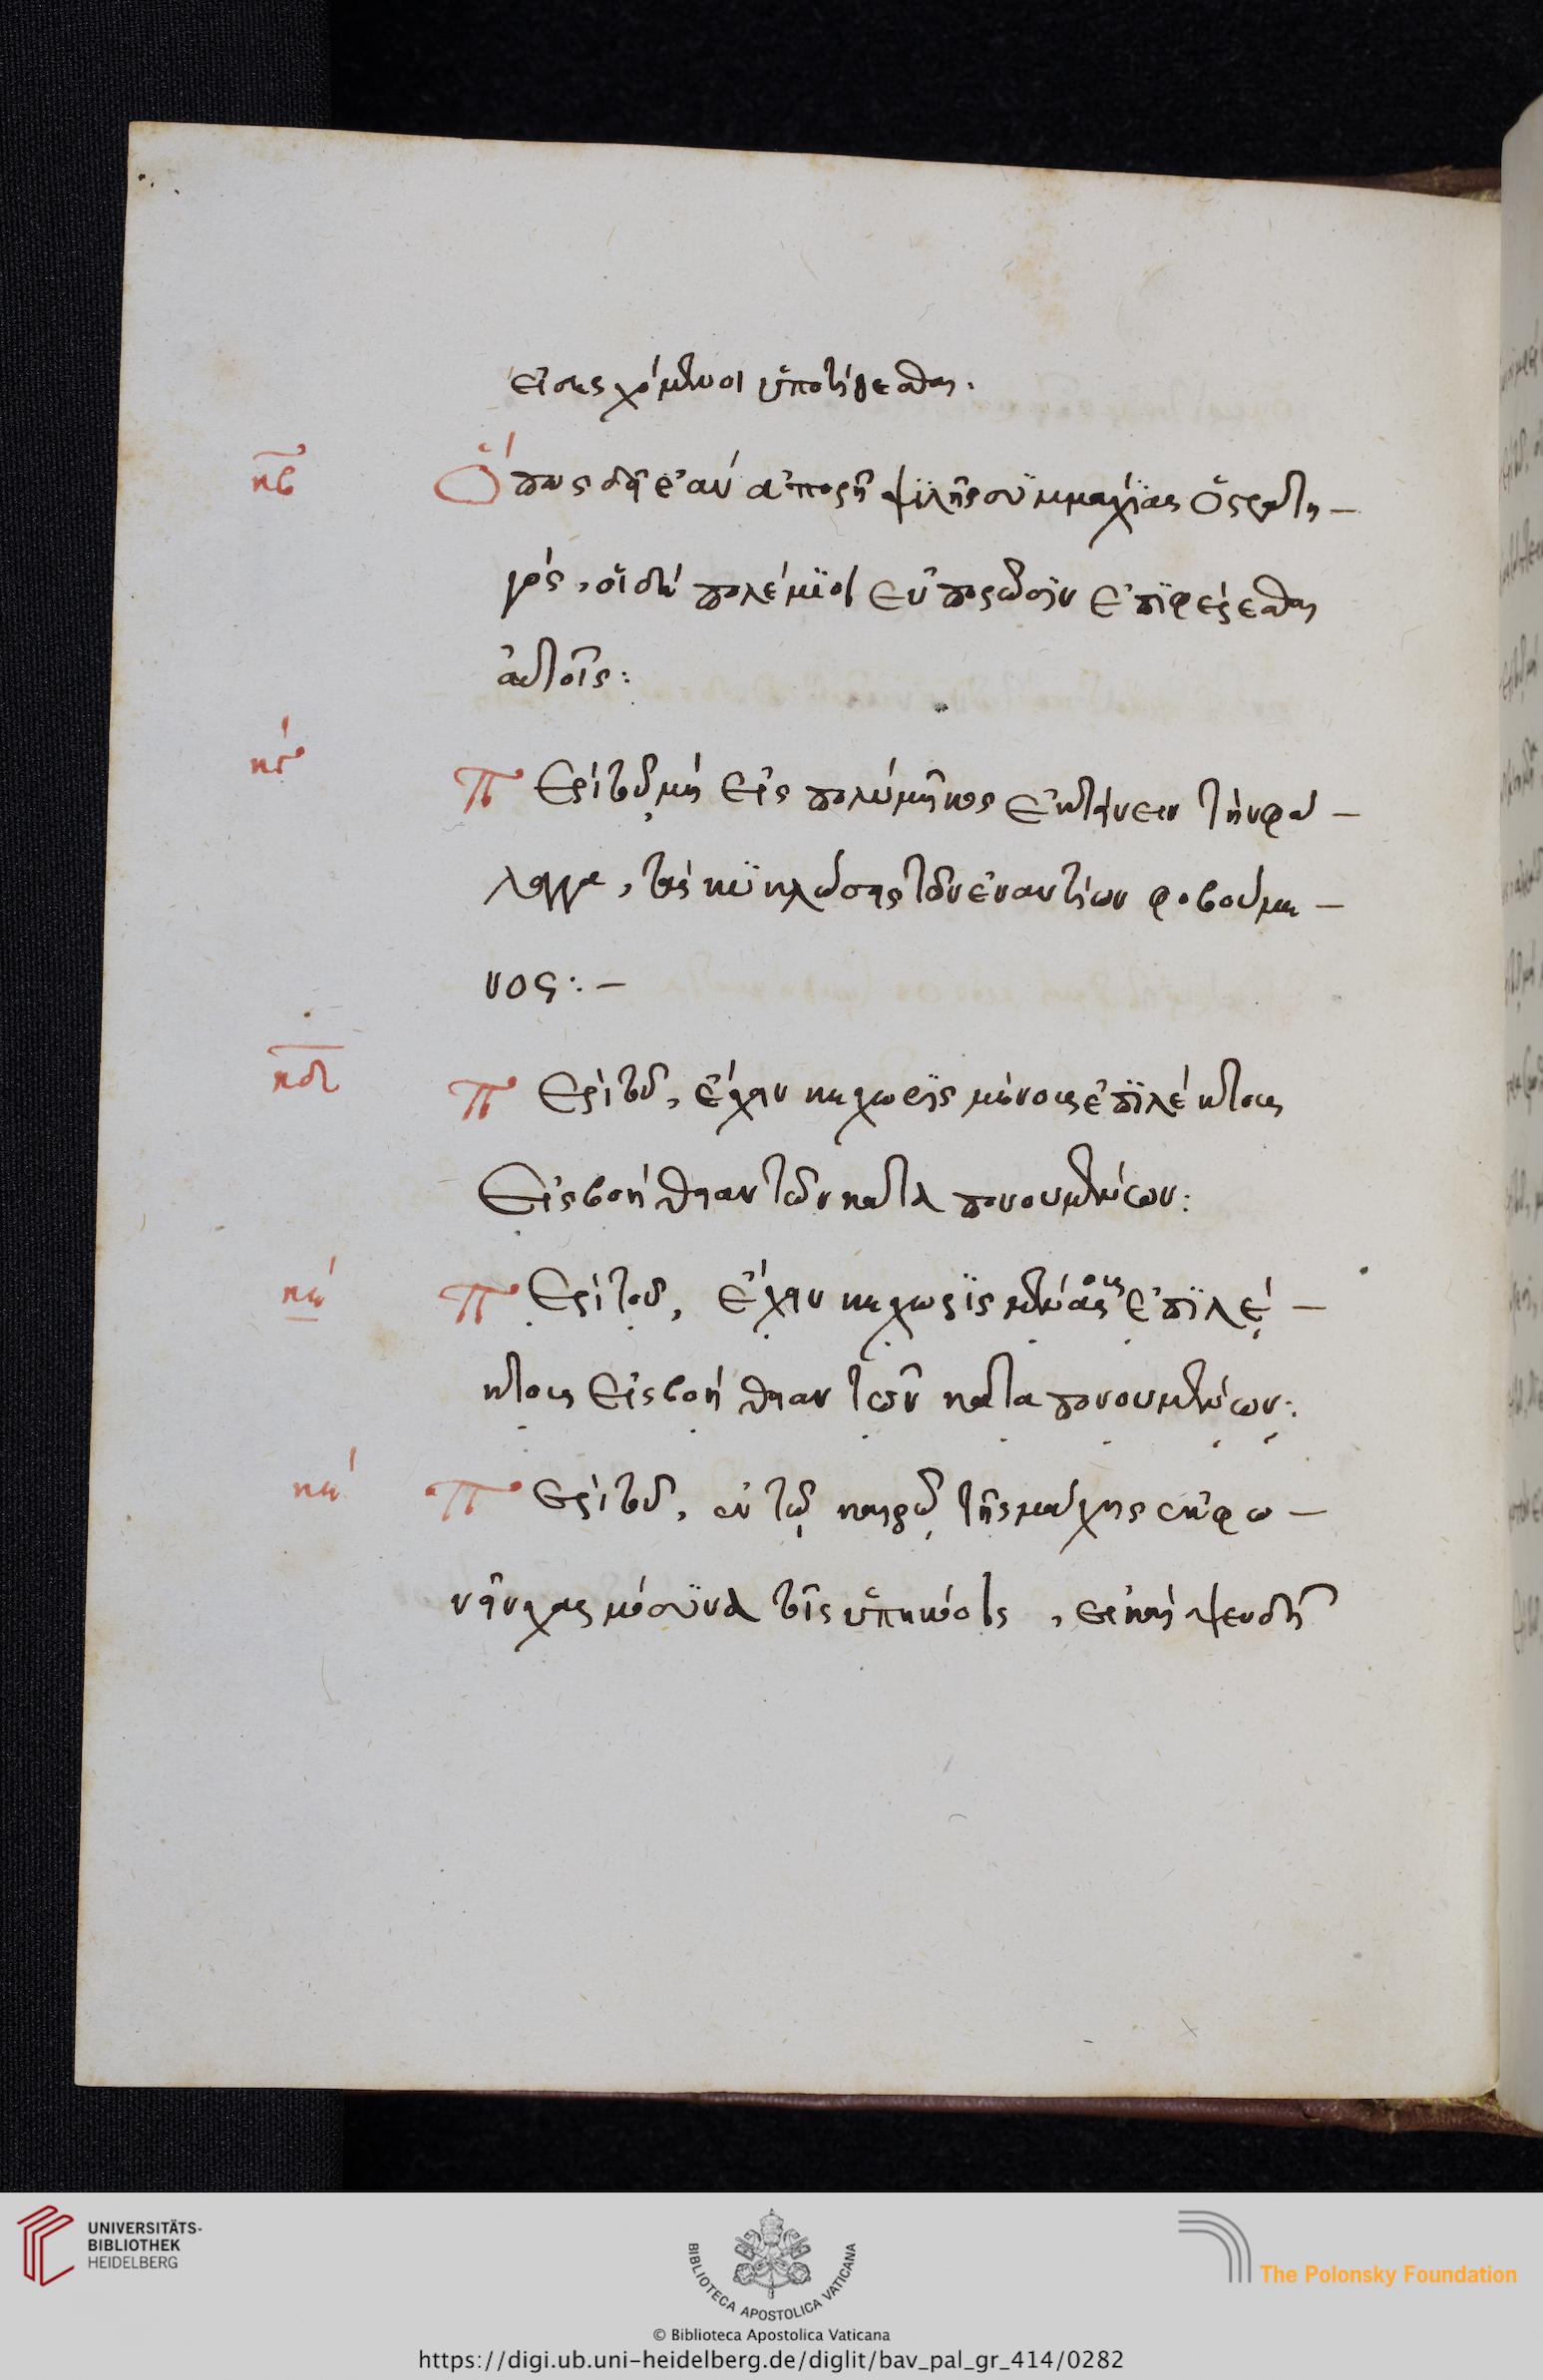 εἰσερχόμενοι ὑποτίθεσθαι.
κβ Ὅπως δεῖ ἐὰν ἀπορῇ ψιλῆς συμμαχίας ὁ στρατη–
γός, οἱ δὲ πολέμιοι εὐπορῶσιν ἐπιφέρεσθαι
αὐτοῖς:
κγ Περὶ τοῦ μὴ εἰς πολὺ μῆκος ἐκτείνειν τὴν φά–
λαγγα, τὰς κυκλώσεις τῶν ἐναντίων φοβούμε–
νος:–
κδ Περὶ τοῦ, ἔχειν καὶ χωρὶς μόνους ἐπιλέκτους
εἰς βοήθειαν τῶν καταπονουμένων:
κε Περὶ τοῦ, ἔχειν καὶ χωρὶς ἐπιλέ–
κτους εἰς βοήθειαν τῶν καταπονουμένων:
κε Περὶ τοῦ, ἐν τῷ καιρῷ τῆς μάχης ἐκφω–
νεῖν χαρμόσυνα τοῖς ὑπηκόοις, εἰ καὶ ψευδῆ
UNIVERSITÄTS-
BIBLIOTHEK
HEIDELBERG
BIBLIOTECA APOSTOLICA VATICANA
The Polonsky Foundation
© Biblioteca Apostolica Vaticana
https://digi.ub.uni-heidelberg.de/diglit/bav_pal_gr_414/0282